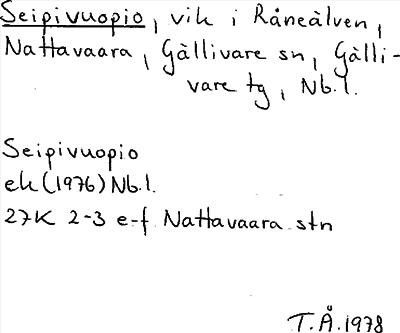 Seipivuopio, vik i Råneälven,
Nattavaara, Gällivare sn, Gälli-
vare tg, Nb.l.
Seipivuopio
ek (1976) Nb.l.
27K 2-3 e-f Nattavaara stn
T.Å. 1978